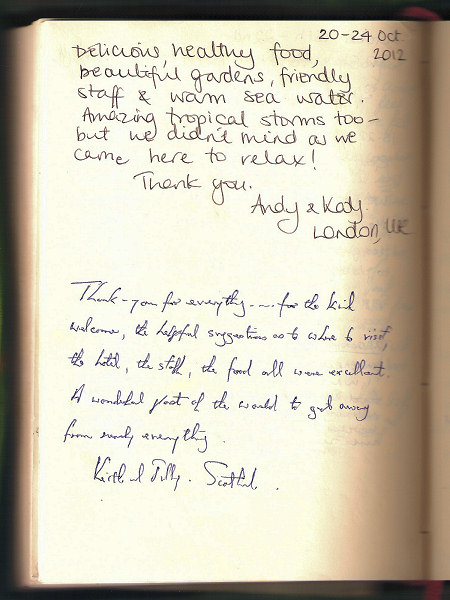 20-24 Oct
2012
Delicious healthy food,
beautiful gardens, friendly
staff & warm sea water.
Amazing tropical storms too -
but we didn't mind as we
came here to relax!
Thank you.
Andy & Katy.
London, UK
Thank-you for everything .... for the kind
welcome, the helpful suggestions as to where to visit,
the hotel, the staff, the food all were excellent.
A wonderful part of the world to get away
from nearly everything.
Scotland.